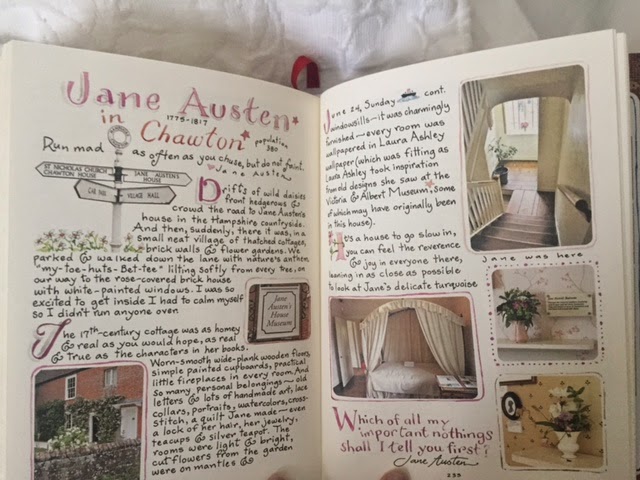 Jane Austen
1775-1817
in Chawton
population
380
Run mad as often as you chuse, but do not faint.
Jane Austen
ST NICHOLAS CHURCH
CHAWTON HOUSE
JANE AUSTEN'S
HOUSE
CAR PARK
VILLAGE HALL
Drifts of wild daisies
front hedgerows &
crowd the road to Jane Austen's
house in the Hampshire countryside.
And then, suddenly, there it was, in a
small neat village of thatched cottages,
& brick walls & flower gardens. We
parked & walked down the lane with nature's anthem,
"my-toe-hurts-Bet-tee" lilting softly from every tree, on
our way to the rose-covered brick house
with white-painted windows. I was so
excited to get inside I had to calm myself
so I didn't run anyone over.
Jane
Austen's
House
Museum
The 17th-century cottage was as homey
& real as you would hope, as real
& true as the characters in her books.
Worn-smooth wide-plank wooden floors,
simple painted cupboards, practical
little fireplaces in every room. And
so many personal belongings—old
letters & lots of handmade art, lace
collars, portraits, watercolors, cross-
stitch, a quilt Jane made—even
a lock of her hair, her jewelry,
teacups & silver teapot. The
rooms were light & bright,
cut flowers from the garden
were on mantles &
June 24, Sunday cont.
windowsills—it was charmingly
furnished—every room was
wallpapered in Laura Ashley
wallpaper (which was fitting as
Laura Ashley took inspiration
from old designs she saw at the
Victoria & Albert Museum, some
of which may have originally been
in this house).
It's a house to go slow in,
you can feel the reverence
& joy in everyone there,
leaning in as close as possible
to look at Jane's delicate turquoise
Jane was here
Which of all my
important nothings
shall I tell you first?
Jane Austen
239